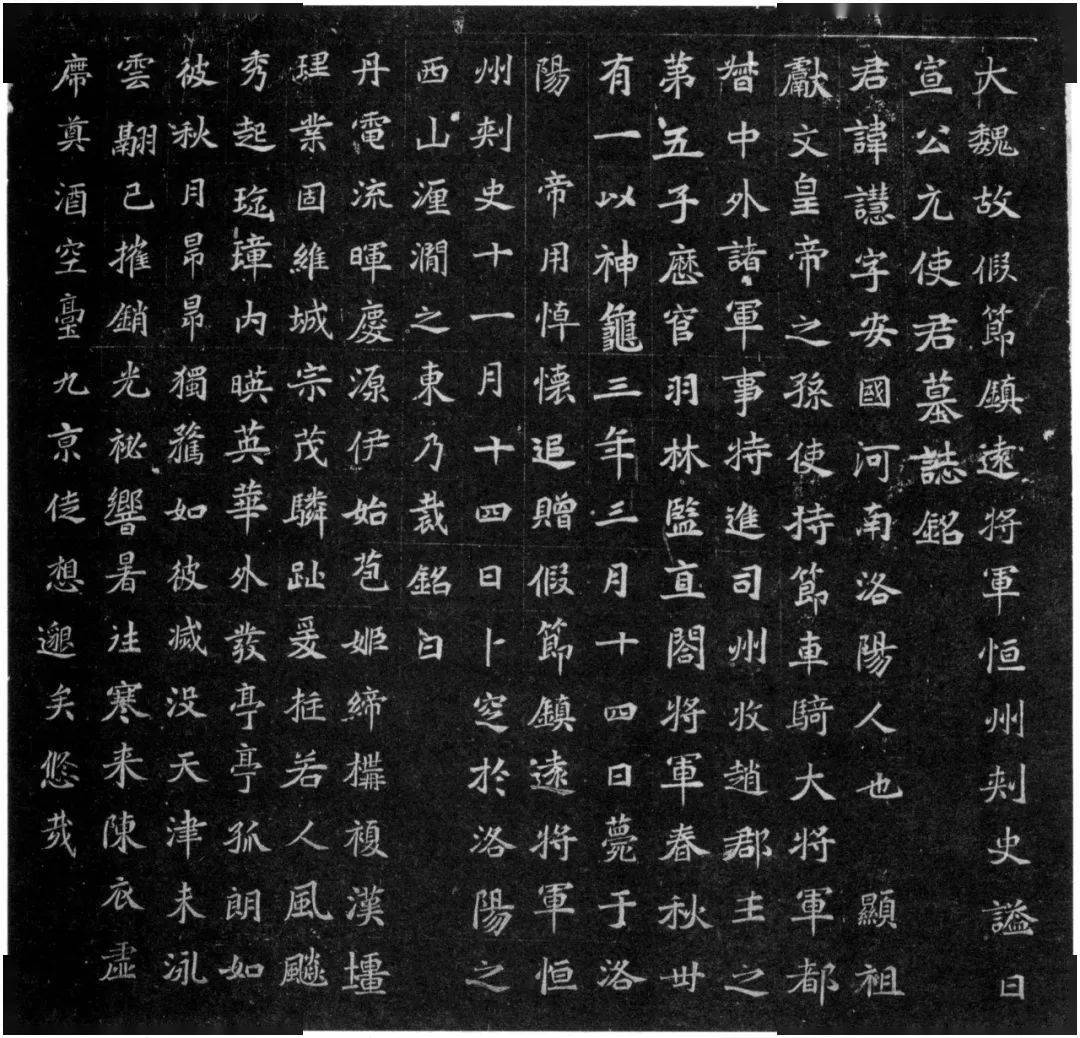 大魏故假節鎮遠將軍恒州刾史謚曰
宣公元使君墓誌銘
君諱譿字安國河南洛陽人也 顯祖
獻文皇帝之孫使持節車騎大將軍都
督中外諸軍事特進司州牧趙郡王之
第五子歷官羽林監直閣將軍春秋卅
有一以神龜三年三月十四日薨于洛
陽 帝用悼懷追贈假節鎮遠將軍恒
州刾史十一月十四日卜窆於洛陽之
西山瀍澗之東乃裁銘曰
丹電流暉慶源伊始苞姬締構複漢壃
理業固維城宗茂驎趾爰挺若人風飈
秀起琁璋内暎英華外發亭亭孤朗如
彼秋月昂昂獨騖如彼滅没天津未泳
雲翮已摧銷光祕響暑往寒来陳衣虛
席奠酒空臺九京徒想邈矣悠哉